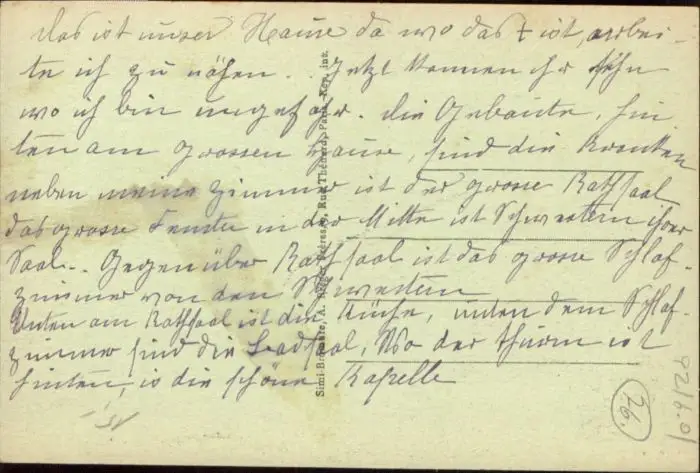 Das ist unser Hause da wo das + ist, arbei-
te ich zu nähen.. Jetzt können ihr sehn
wo ich bin ungefähr. Die Gebäute, hin
ten am grossen Hause, sind die Kranken
neben meine Zimmer ist der grosse Rathsaal
das grosse Fenster in der Mitte ist Schwestern ihrer
Saal.. Gegenüber Rathsaal ist das grosse Schlaf-
zimmer von den Schwestern
Unten am Rathsaal ist die Küche, unten dem Schlaf-
zimmer sind die Saal, Wo der Thurm ist
hinten, is die schöne Kapelle
Simi-Bromure, A. Breger Frères, Rue Thénard, Paris. Rep. int.
26.